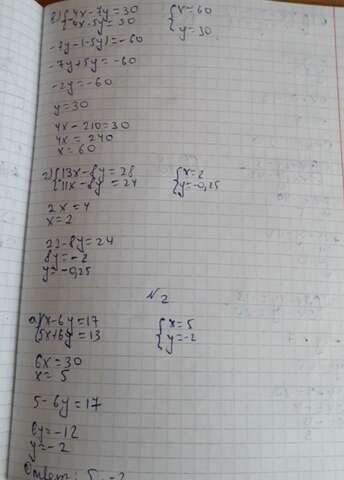 в) { 4x-7y=30 { x=60
{ 4x-5y=30 { y=30
-7y-(-5y)=-60
-7y+5y=-60
-2y=-60
y=30
4x-210=30
4x=240
x=60
г) { 13x-8y=28 { x=2
{ 11x-8y=24 { y=-0,25
2x=4
x=2
22-8y=24
8y=-2
y=-0,25
№2
а) { x-6y=17 { x=5
{ 5x+6y=13 { y=-2
6x=30
x=5
5-6y=17
6y=-12
y=-2
Ответ: 5, -2